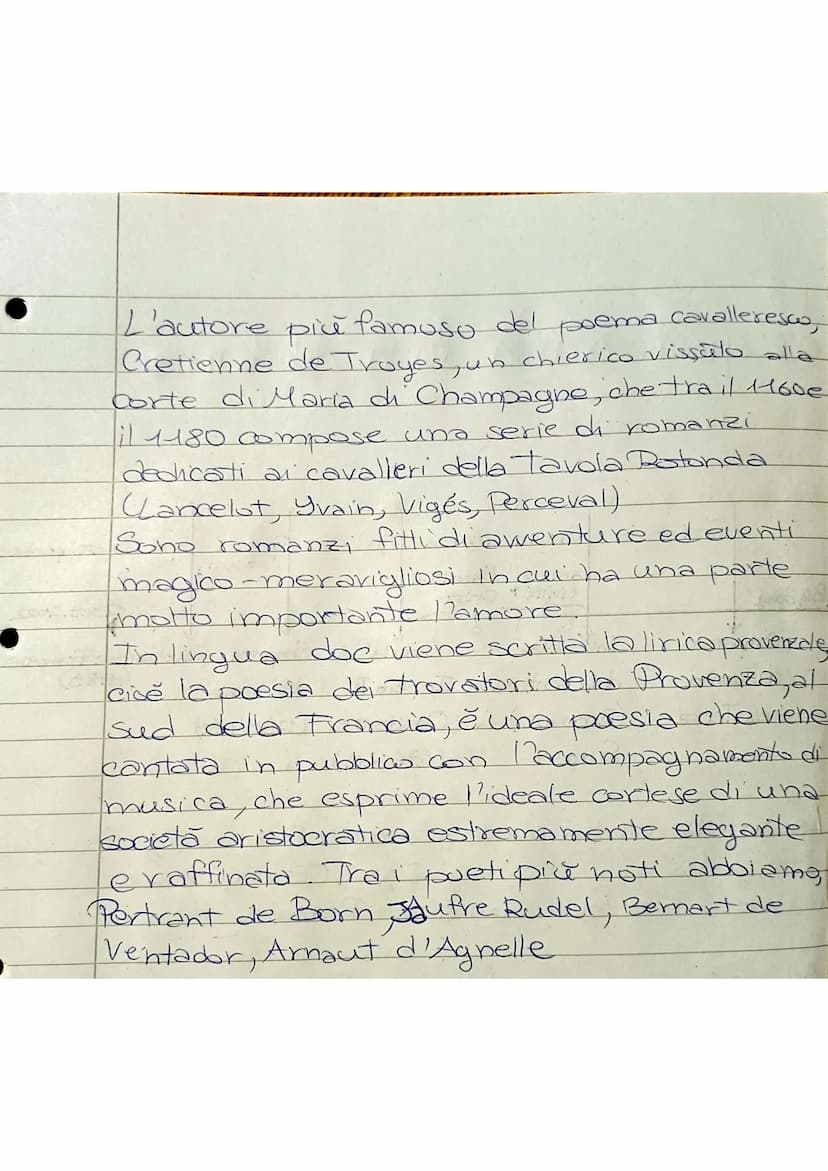 L'autore più famoso del poema cavalleresco,
Cretienne de Troyes, un chierico vissuto alla
corte di Maria di Champagne, che tra il 1160 e
il 1180 compose una serie di romanzi
dedicati ai cavalleri della Tavola Rotonda
(Lancelot, Yvain, Vigés, Perceval)
Sono romanzi fitti di avventure ed eventi
magico-meravigliosi in cui ha una parte
molto importante l'amore.
In lingua doc viene scritta la lirica provenzale,
cioé la poesia dei trovatori della Provenza, al
sud della Francia, é una poesia che viene
cantata in pubblico con l'accompagnamento di
musica, che esprime l'ideale cortese di una
società aristocratica estremamente elegante
e raffinata. Tra i poeti più noti abbiamo,
Pertrant de Born, Jaufre Rudel, Bernart de
Ventador, Arnaut d'Agnelle